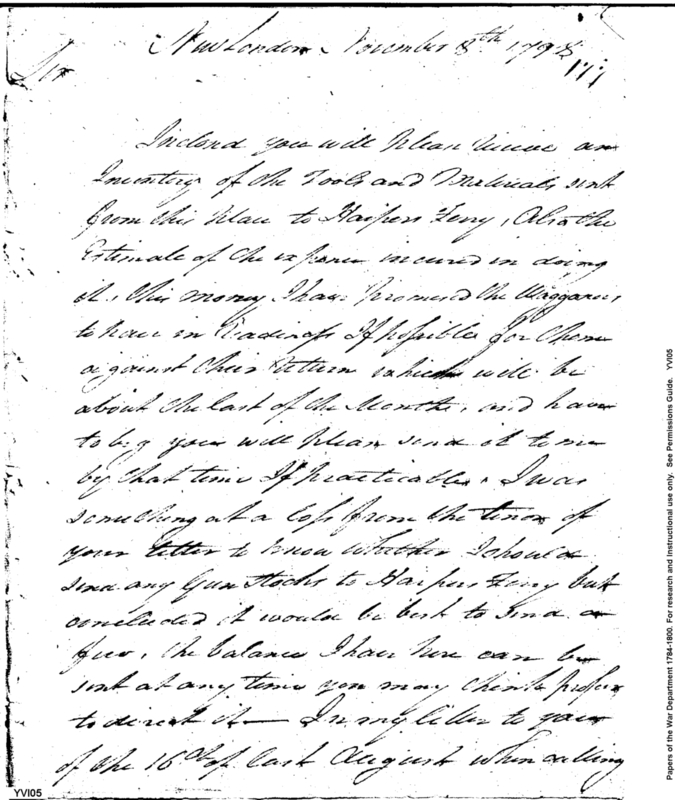 New London November 8th 1798
Sir
Inclosd you will please receive an
Inventory of the Tools and Materials sent
from this place to Harpers Ferry, Also the
Estimate of the expence incured in doing
it, this money I have promised the Waggoners
to have in readiness If possible for them
against their return which will be
about the last of the Month, and have
to beg you will please send it to me
by that time If practicable. I was
something at a loss from the tenor of
your letter to know whether I should
send any Gun Stocks to Harpers Ferry but
concluded it would be best to send a
few, the balance I have here can be
sent at any time you may think proper
to direct it — In my letter to you
of the 16th of last August when calling
YVI05
Papers of the War Department 1784-1800. For research and Instructional use only. See Permissions Guide. YVI05